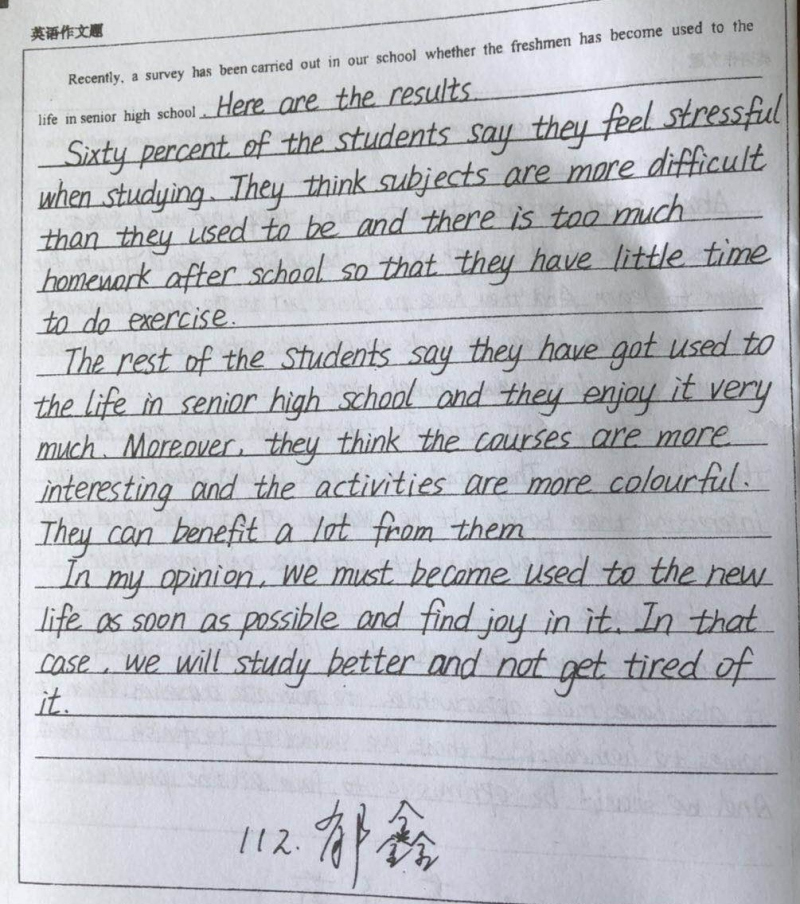 英语作文题
Recently, a survey has been carried out in our school whether the freshmen has become used to the
life in senior high school. Here are the results.
Sixty percent of the students say they feel stressful
when studying. They think subjects are more difficult
than they used to be and there is too much
homework after school so that they have little time
to do exercise.
The rest of the students say they have got used to
the life in senior high school and they enjoy it very
much. Moreover, they think the courses are more
interesting and the activities are more colourful.
They can benefit a lot from them
In my opinion, we must become used to the new
life as soon as possible and find joy in it. In that
case, we will study better and not get tired of
it.
112. 郁鑫